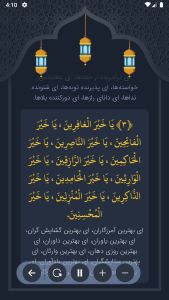 4:10
خواسته‌ها، ای پذیرنده توبه‌ها، ای شنونده
نداها، ای دانای رازها، ای دورکننده بلاها.
﴿٣﴾ يَا خَيْرَ الْغَافِرِينَ ، يَا خَيْرَ
الْفَاتِحِينَ ، يَا خَيْرَ النَّاصِرِينَ ، يَا خَيْرَ
الْحَاكِمِينَ ، يَا خَيْرَ الرَّازِقِينَ ، يَا خَيْرَ
الْوَارِثِينَ ، يَا خَيْرَ الْحَامِدِينَ ، يَا خَيْرَ
الذَّاكِرِينَ ، يَا خَيْرَ الْمُنْزِلِينَ ، يَا خَيْرَ
الْمُحْسِنِينَ.
ای بهترین آمرزگاران، ای بهترین گشایش گران،
ای بهترین یاوران، ای بهترین داوران، ای
بهترین روزی دهان، ای بهترین وارثان، ای